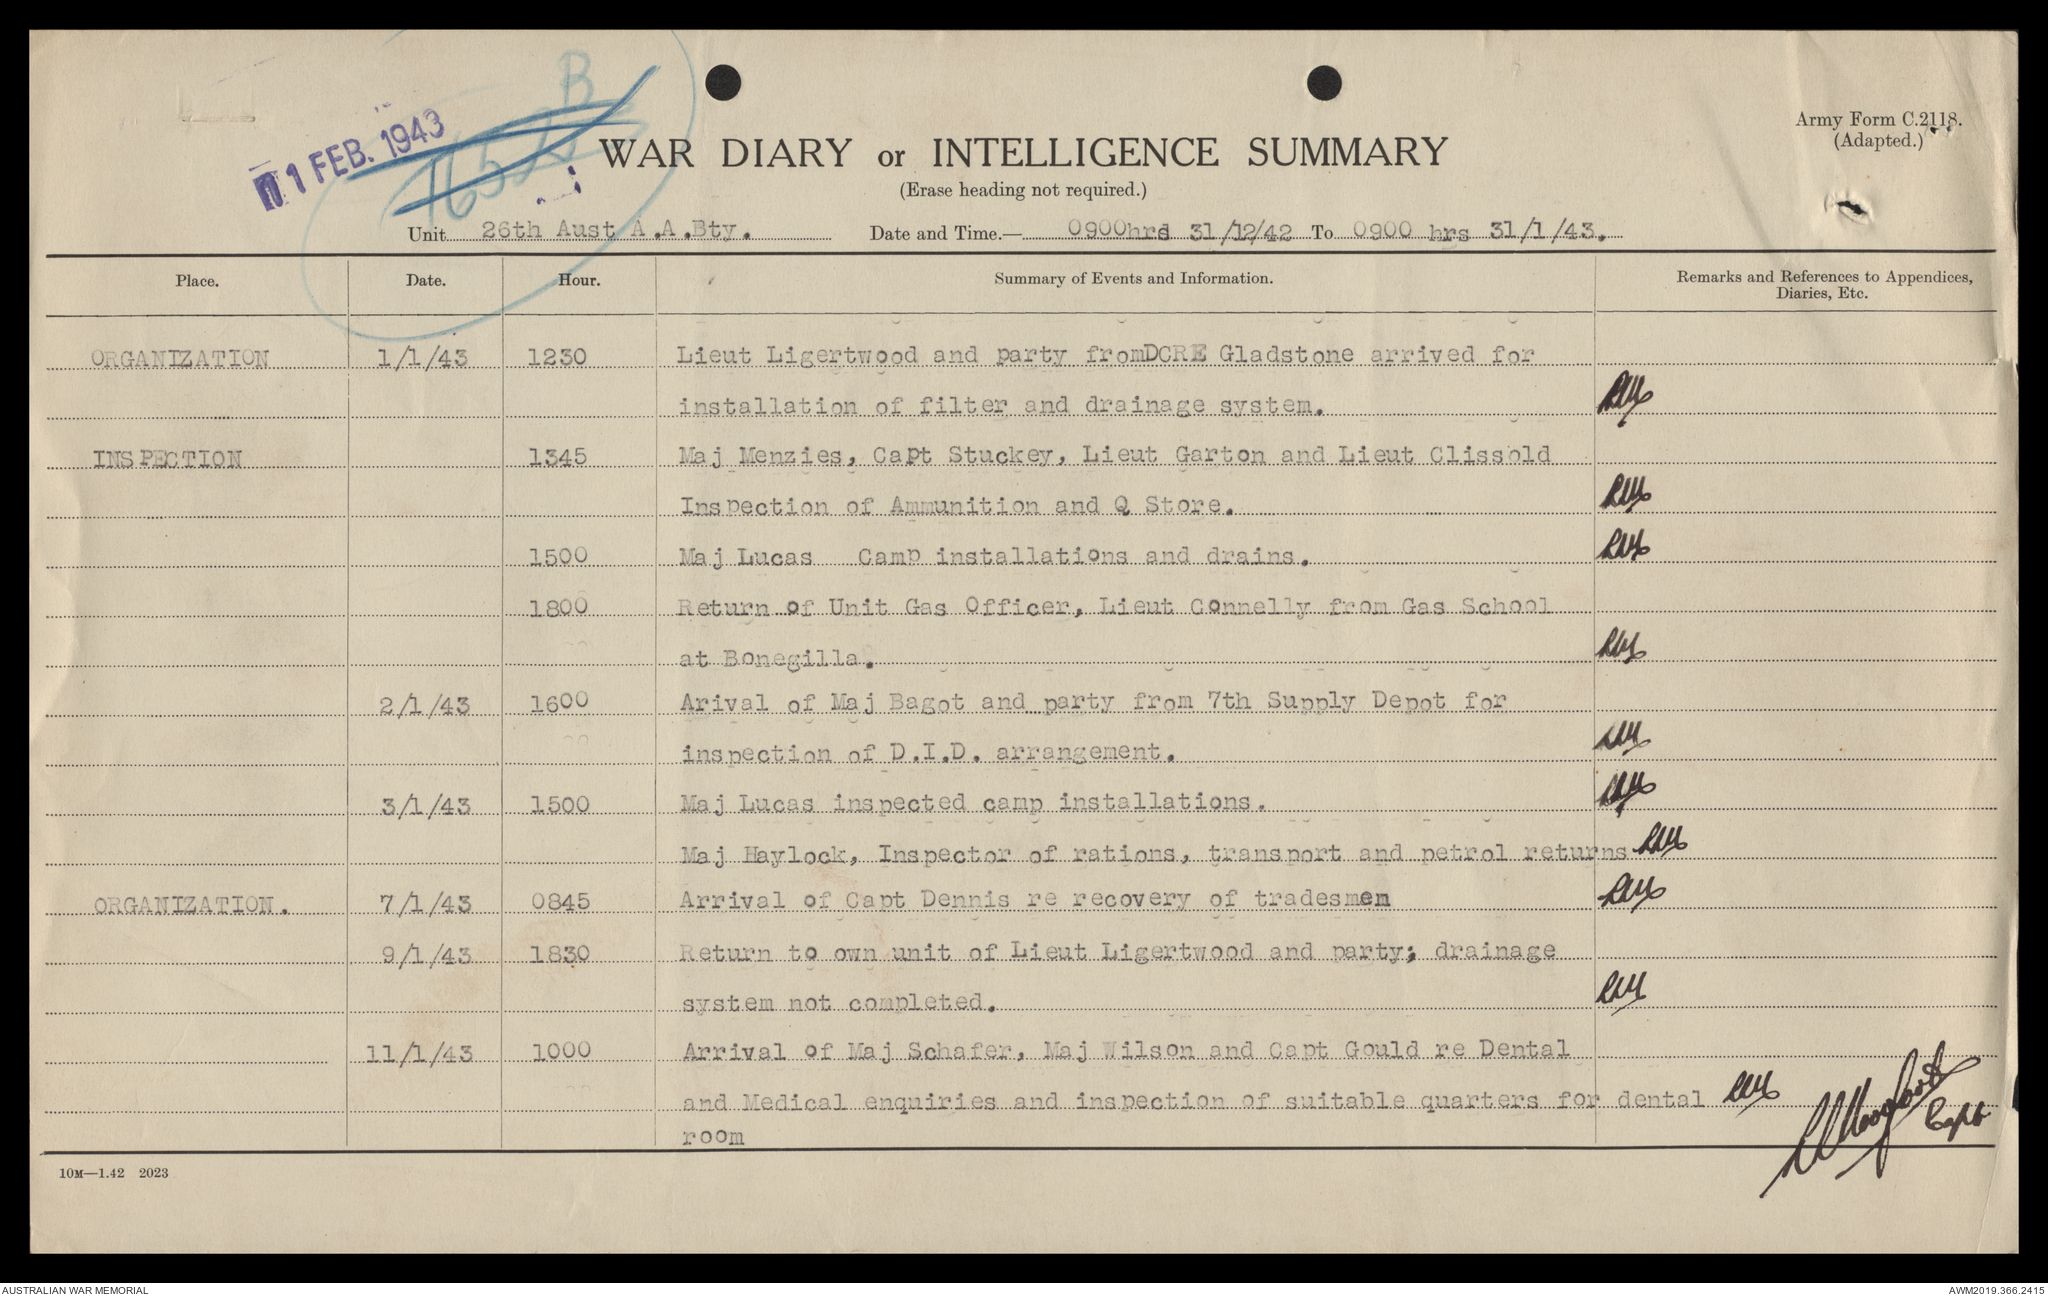 B
01 FEB. 1943
Army Form C.2118.
(Adapted.)
WAR DIARY or INTELLIGENCE SUMMARY
(Erase heading not required.)
Unit 26th Aust A.A.Bty. Date and Time.— 0900hrs 31/12/42 To 0900 hrs 31/1/43.
Place. Date. Hour. Summary of Events and Information. Remarks and References to Appendices,
Diaries, Etc.
ORGANIZATION 1/1/43 1230 Lieut Ligertwood and party fromDCRE Gladstone arrived for
installation of filter and drainage system.
INSPECTION 1345 Maj Menzies, Capt Stuckey, Lieut Garton and Lieut Clissold
Inspection of Ammunition and Q Store.
1500 Maj Lucas Camp installations and drains.
1800 Return of Unit Gas Officer, Lieut Connelly from Gas School
at Bonegilla.
2/1/43 1600 Arival of Maj Bagot and party from 7th Supply Depot for
inspection of D.I.D. arrangement.
3/1/43 1500 Maj Lucas inspected camp installations.
Maj Haylock, Inspector of rations, transport and petrol returns
ORGANIZATION. 7/1/43 0845 Arrival of Capt Dennis re recovery of tradesmen
9/1/43 1830 Return to own unit of Lieut Ligertwood and party; drainage
system not completed.
11/1/43 1000 Arrival of Maj Schafer, Maj Wilson and Capt Gould re Dental
and Medical enquiries and inspection of suitable quarters for dental
room
Capt
10M—1.42 2023
AUSTRALIAN WAR MEMORIAL
AWM2019.366.2415